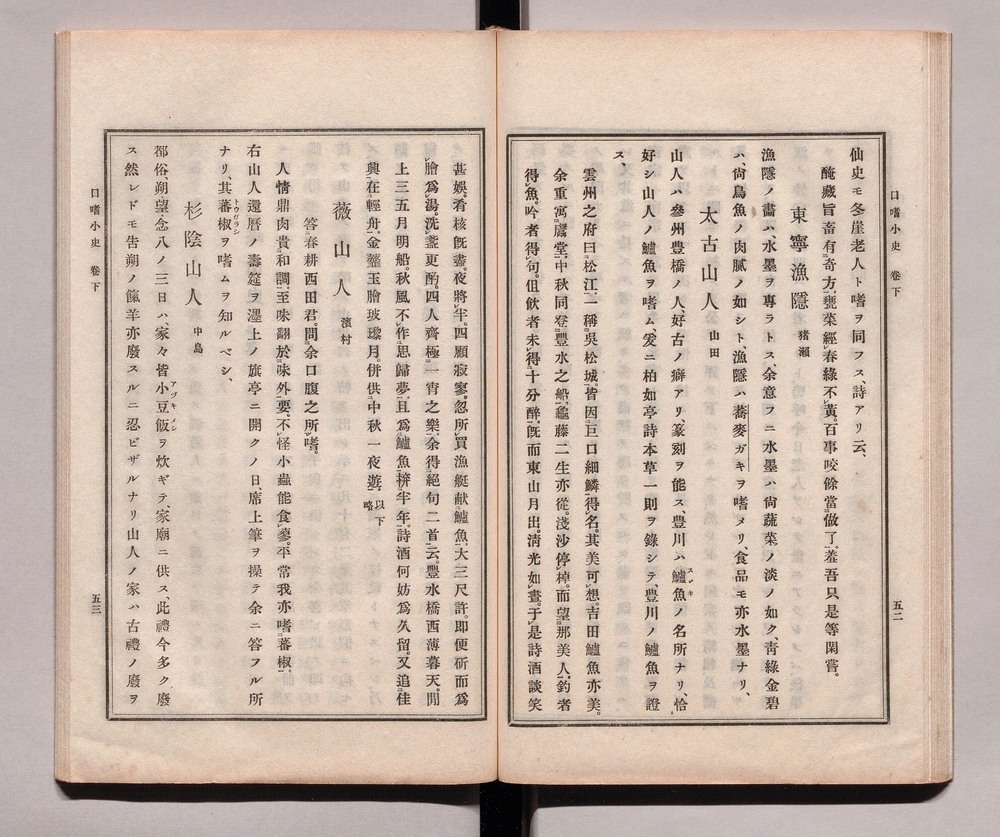 口嗜小史 卷下
五二
仙史モ冬崖老人ト嗜ヲ同フス、詩アリ云、
醃藏旨畜有奇方。甕菜經春綠不黃。百事咬餘當倣了。羞吾只是等閑嘗。
東寧漁隱 猪瀨
漁隱ノ畵ハ、水墨ヲ專ラトス、余意フニ水墨ハ尙蔬菜ノ淡ノ如ク、靑綠金碧
ハ、尙鳥魚ノ肉膩ノ如シト、漁隱ハ蕎麥ガキヲ嗜メリ、食品モ亦水墨ナリ、
太古山人 山田
山人ハ參州豊橋ノ人、好古ノ癖アリ篆刻ヲ能ス、豊川ハ鱸魚ノ名所ナリ、恰
スヾキ
好シ山人ノ鱸魚ヲ嗜ム、爰ニ柏如亭詩本草一則ヲ錄シテ、豊川ノ鱸魚ヲ證
ス、
雲州之府曰松江。二稱吳松城。皆因巨口細鱗得名。其美可想。吉田鱸魚亦美。
余重寓虞堂。中秋同登豐水之船。龜藤二生亦從。淺沙停棹。而望那美人。釣者
得魚。吟者得句。但飮者未得十分醉。旣而東山月出。淸光如晝。于是詩酒談笑
甚娛肴核旣盡。夜將半。四顧寂寥。忽所買漁艇獻鱸魚。大三尺許。卽便斫而爲
膾爲湯。洗盞更酌。四人齊極一宵之樂。余得絕句二首云。豐水橋西薄暮天。閒
上三五月明船。秋風不作思歸夢。且爲鱸魚拚半年。詩酒何妨爲久留。又追佳
興在輕舟。金虀玉膾玻瓈月。倂供中秋一夜遊。以下略
薇山人 濱村
答春耕西田君。問余口腹之所嗜。
人情鼎肉貴和調。至味翻於味外要。不怪小蟲能食蓼。平常我亦嗜蕃椒。
右山人還曆ノ壽筵ヲ墨上ノ旗亭ニ開クノ日、席上筆ヲ操テ余ニ答フル所
ナリ、其蕃椒ヲ嗜ムヲ知ルベシ、
トウガラシ
杉陰山人 中島
鄙俗、朔望念八ノ三日ハ、家々皆小豆飯ヲ炊ギテ、家廟ニ供ス、此禮今多ク廢
アヅキメシ
ス然レドモ吿朔ノ餼羊亦廢スルニ忍ビザルナリ山人ノ家ハ古禮ノ廢ヲ
口嗜小史 卷下
五三